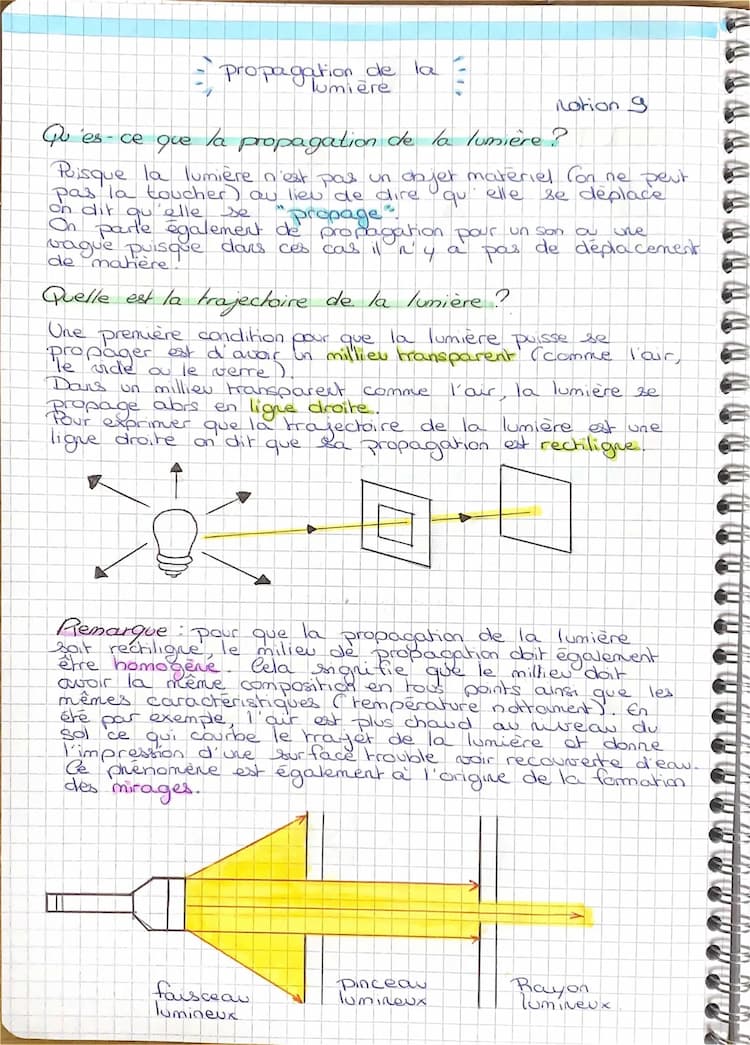 propagation de la
lumière
notion 9
Qu'es-ce que la propagation de la lumière ?
Puisque la lumière n'est pas un objet matériel (on ne peut
pas la toucher) au lieu de dire qu'elle se déplace
on dit qu'elle se "propage".
On parle également de propagation pour un son ou une
vague puisque dans ces cas il n'y a pas de déplacement
de matière.
Quelle est la trajectoire de la lumière ?
Une première condition pour que la lumière puisse se
propager est d'avoir un millieu transparent (comme l'air,
le vide ou le verre).
Dans un millieu transparent comme l'air, la lumière se
propage alors en ligne droite.
Pour exprimer que la trajectoire de la lumière est une
ligne droite on dit que sa propagation est rectiligne.
Remarque : pour que la propagation de la lumière
soit rectiligne, le milieu de propagation doit également
être homogène. Cela signifie que le millieu doit
avoir la même composition en tous points ainsi que les
mêmes caractéristiques (température nottament). En
été par exemple, l'air est plus chaud au niveau du
sol ce qui courbe le trajet de la lumière et donne
l'impression d'une surface trouble voir recouverte d'eau.
Ce phénomène est également à l'origine de la formation
des mirages.
faisceau
lumineux
pinceau
lumineux
Rayon
lumineux.